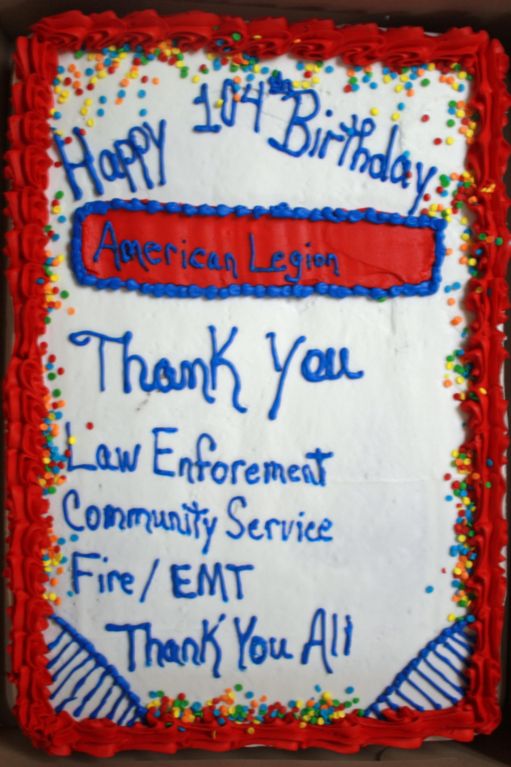 Happy 104th Birthday
American Legion
Thank You
Law Enforement
Community Service
Fire/EMT
Thank You All